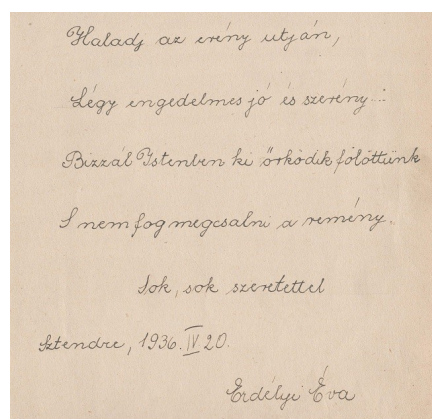 Haladj az erény utján,
Légy engedelmes jó és szerény...
Bizzál Istenben ki őrködik fölöttünk
S nem fog megcsalni a remény.
Sok, sok szeretettel
Sztendre, 1936. IV. 20.
Erdélyi Éva